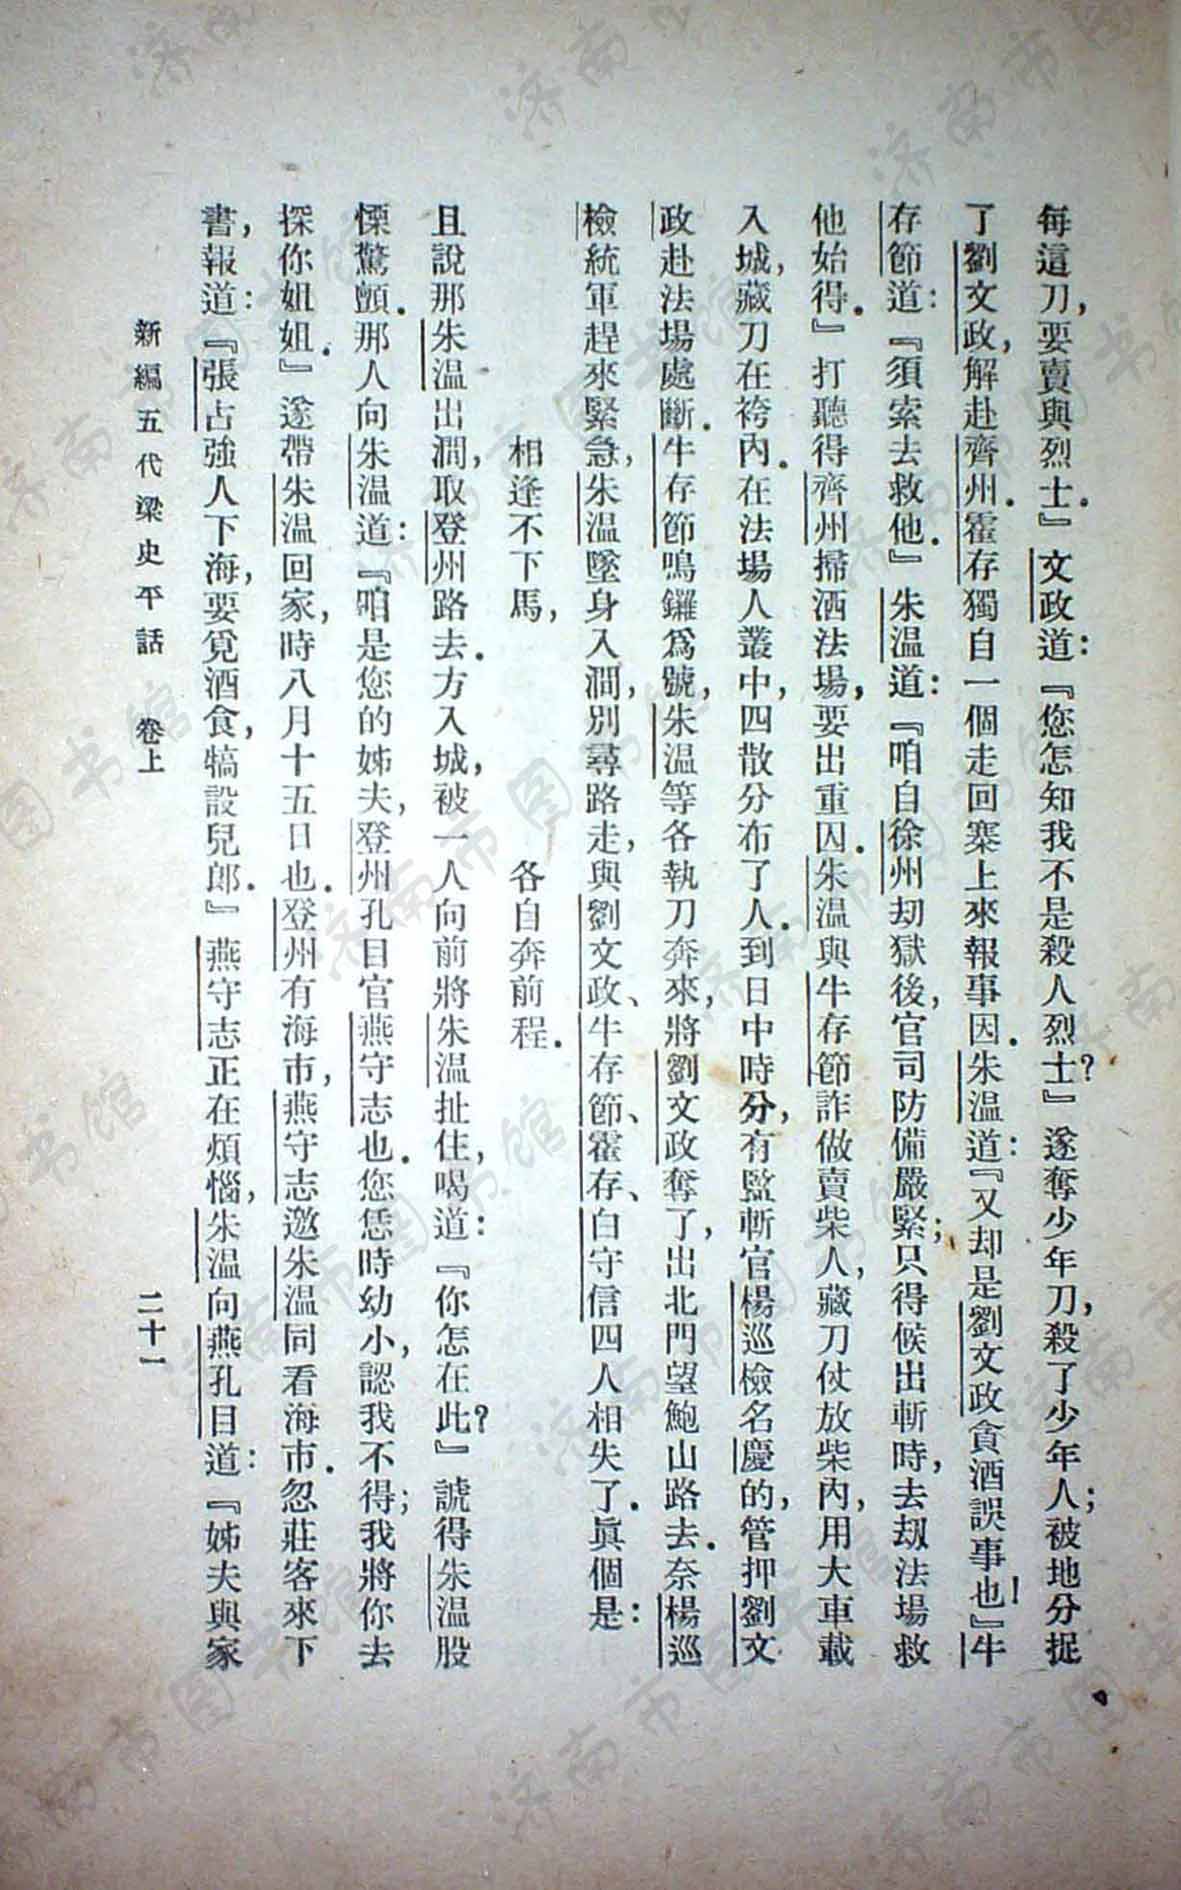 每這刀，要賣與烈士．』文政道：『您怎知我不是殺人烈士？』遂奪少年刀，殺了少年人；被地分捉
了劉文政，解赴齊州．霍存獨自一個走回寨上來報事因．朱温道：『又却是劉文政貪酒誤事也！』牛
存節道：『須索去救他．』朱温道：『咱自徐州劫獄後，官司防備嚴緊；只得候出斬時，去刼法場救
他始得．』打聽得齊州掃洒法場，要出重囚．朱温與牛存節詐做賣柴人，藏刀仗放柴內，用大車載
入城，藏刀在袴內．在法場人叢中，四散分布了人．到日中時分，有監斬官楊巡檢名慶的，管押劉文
政赴法場處斷．牛存節鳴鑼爲號，朱温等各執刀奔來，將劉文政奪了，出北門望鮑山路去．奈楊巡
檢統軍趕來緊急，朱温墜身入澗，別尋路走，與劉文政、牛存節、霍存、白守信四人相失了．眞個是：
相逢不下馬，　各自奔前程．
且說那朱温出澗，取登州路去．方入城，被一人向前將朱温扯住，喝道：『你怎在此？』諕得朱温股
慄驚顫．那人向朱温道：『咱是您的姊夫，登州孔目官燕守志也．您恁時幼小，認我不得；我將你去
探你姐姐．』遂帶朱温回家，時八月十五日也．登州有海市，燕守志邀朱温同看海市．忽莊客來下
書，報道：『張占強人下海，要覓酒食，犒設兒郎．』燕守志正在煩惱，朱温向燕孔目道：『姊夫與家
新編五代梁史平話　卷上　二十一
济南市图书馆